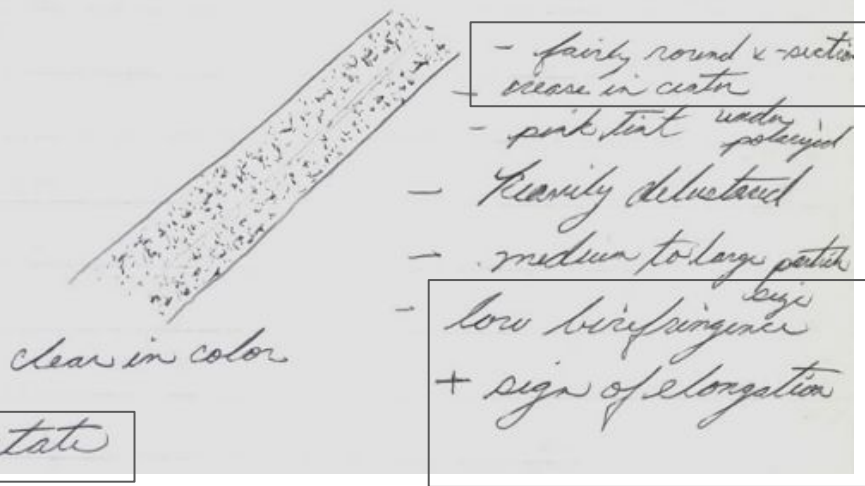 - fairly round x-section
- crease in center
- pink tint under polarized
- Heavily delustered
- medium to large particle size
- low birefringence
+ sign of elongation
clear in color
tate